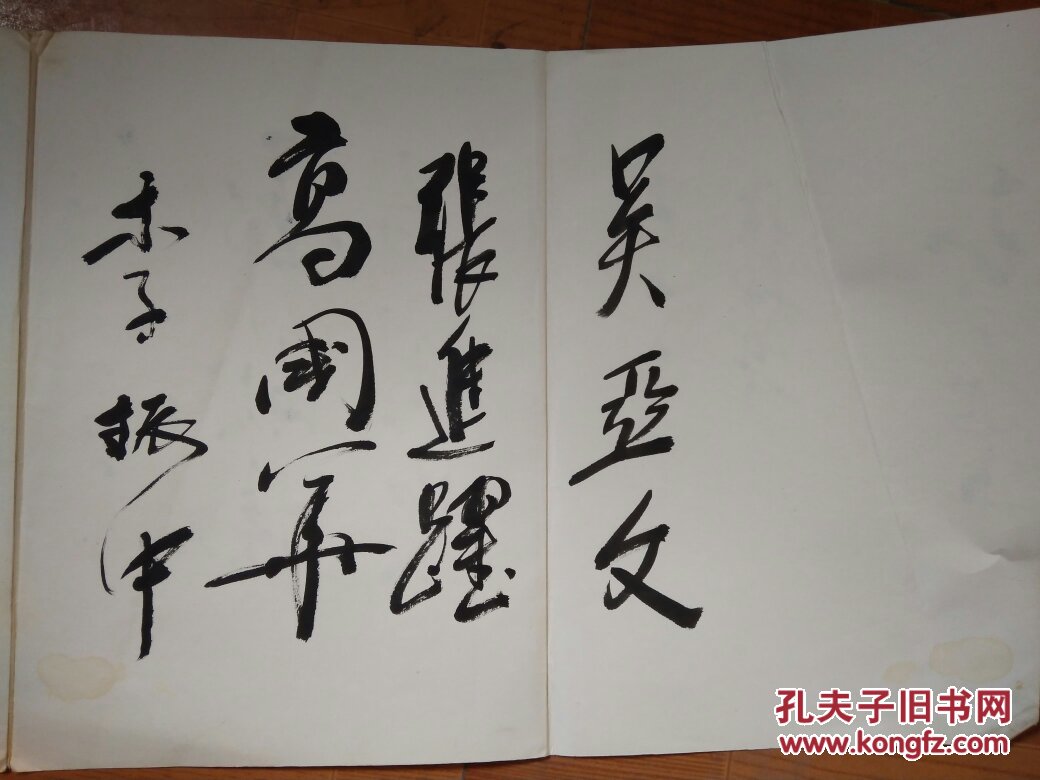 吴亞文
張進躍
高國華
李振中
孔夫子旧书网
www.kongfz.com